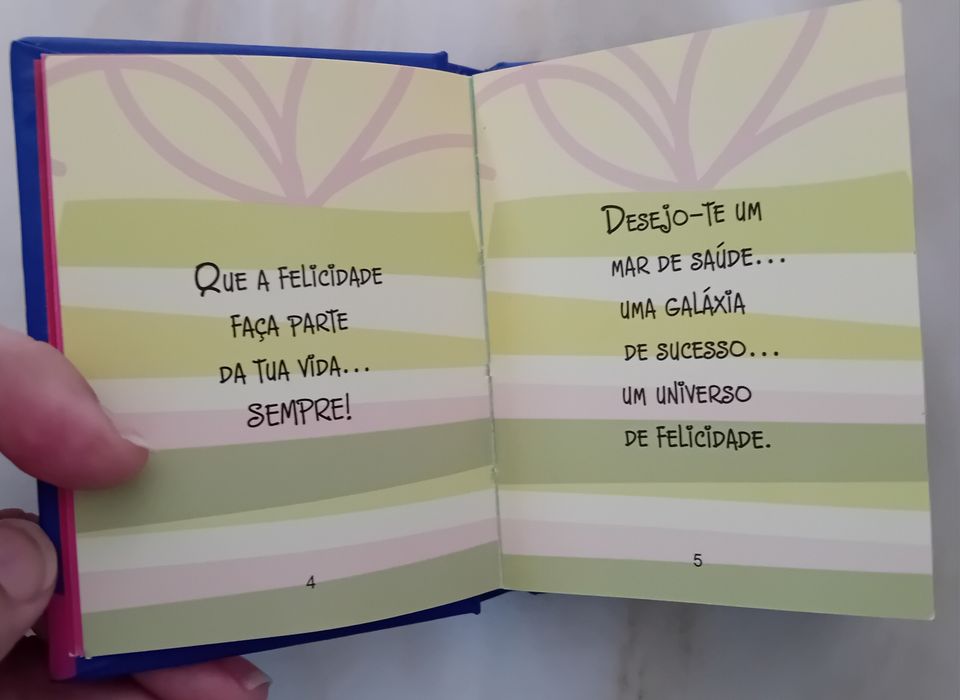 Que a felicidade
faça parte
da tua vida...
SEMPRE!
4
Desejo-te um
mar de saúde...
uma galáxia
de sucesso...
um universo
de felicidade.
5